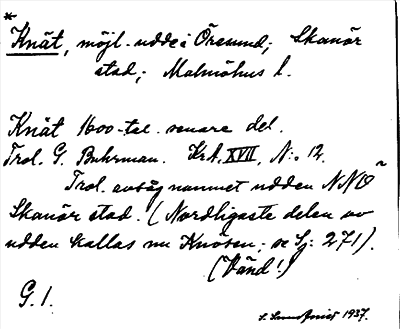 *
Knät, möjl. udde i Öresund; Skanör
stad; Malmöhus l.
Knät 1600-tal. senare del.
Trol. G. Buhrman. Kr.A. XVII, N:o 12.
Trol. avsåg namnet udden NNO
Skanör stad. (Nordligaste delen av
udden kallas nu Knösen; se Sj: 271).
(Vänd!)
G. 1.
1937.